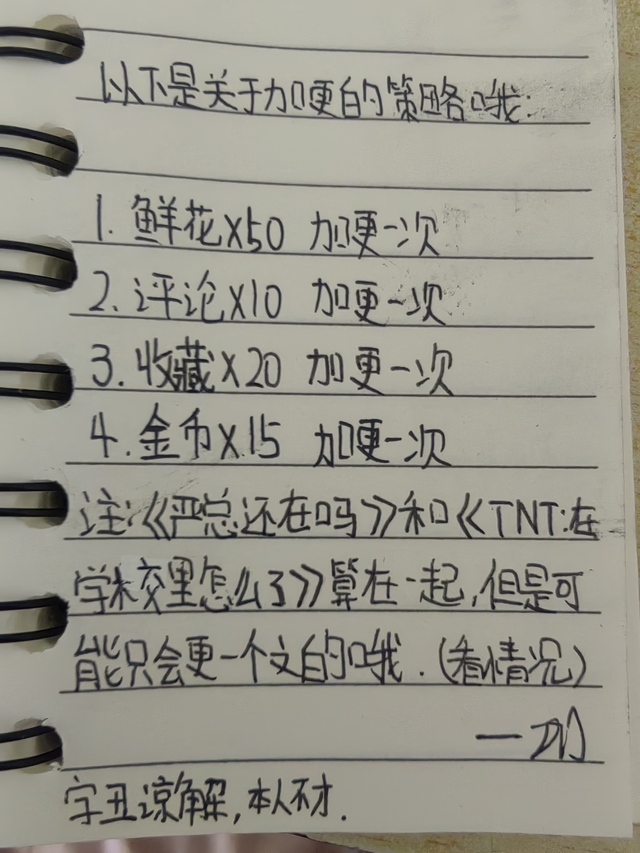 以下是关于加更的策略哦:
1. 鲜花X50 加更一次
2. 评论X10 加更一次
3. 收藏X20 加更一次
4. 金币X15 加更一次
注:《严总还在吗》和《TNT:在
学校里怎么了》算在一起,但是可
能只会更一个文的哦.(看情况)
字丑谅解,本人不才.